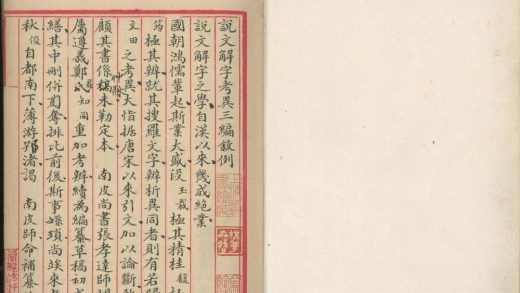 說文解字考異三編敘例
說文解字之學自漢以來幾成絕業
國朝鴻儒輩起斯業大盛段玉裁極其精桂馥
筠極其辨就其搜羅文字辨析異同者則有若歸
文田之考異大恉据唐宋以來引文加以論斷
顧其書係稿未勒定本 南皮尚書張孝達師
屬遵義鄭知同重加考辨續為編纂草稿初
繕其中刪併奪排比前後斯事緐瑣尚竢來
秋俊自都南下薄游鄂渚謁 南皮師命補纂